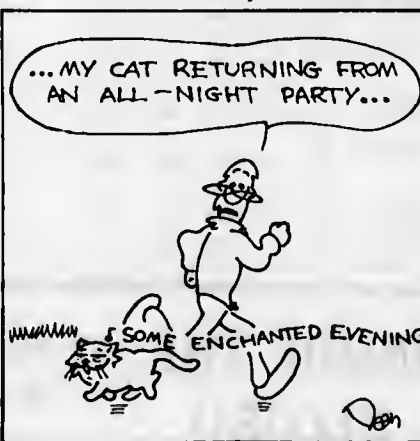 ...MY CAT RETURNING FROM
AN ALL-NIGHT PARTY...
♪ SOME ENCHANTED EVENING